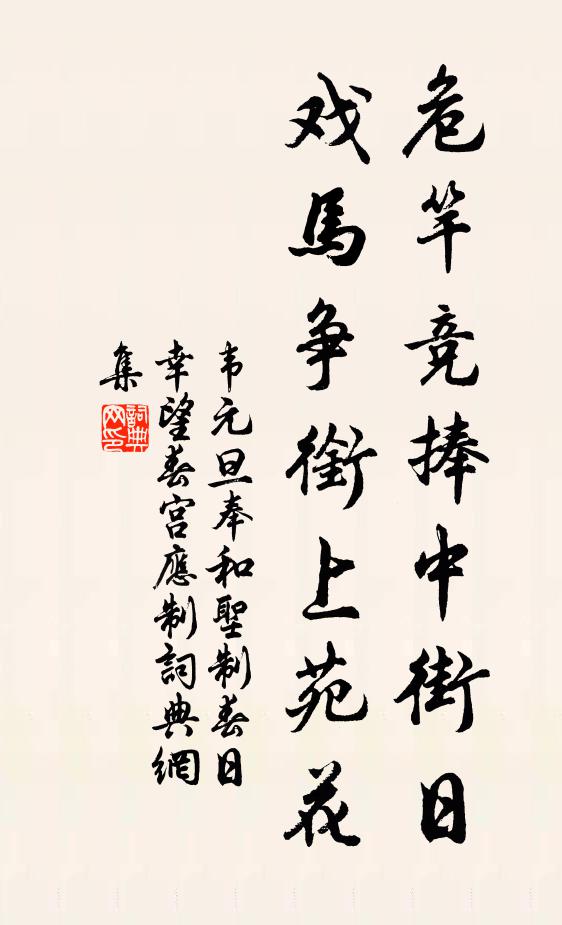 危竿竞捧中街日
戏馬争銜上苑花
韦元旦奉和聖制春日
幸望春宫應制詞典網
集
詞典
网印